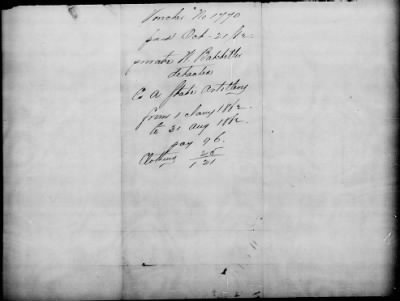 Voucher No 1770
paid Oct - 21 /62
private H
Co A State Artillery
from 1 May 1862
to 31 Aug 1862
pay 96.
Clothing 25
121